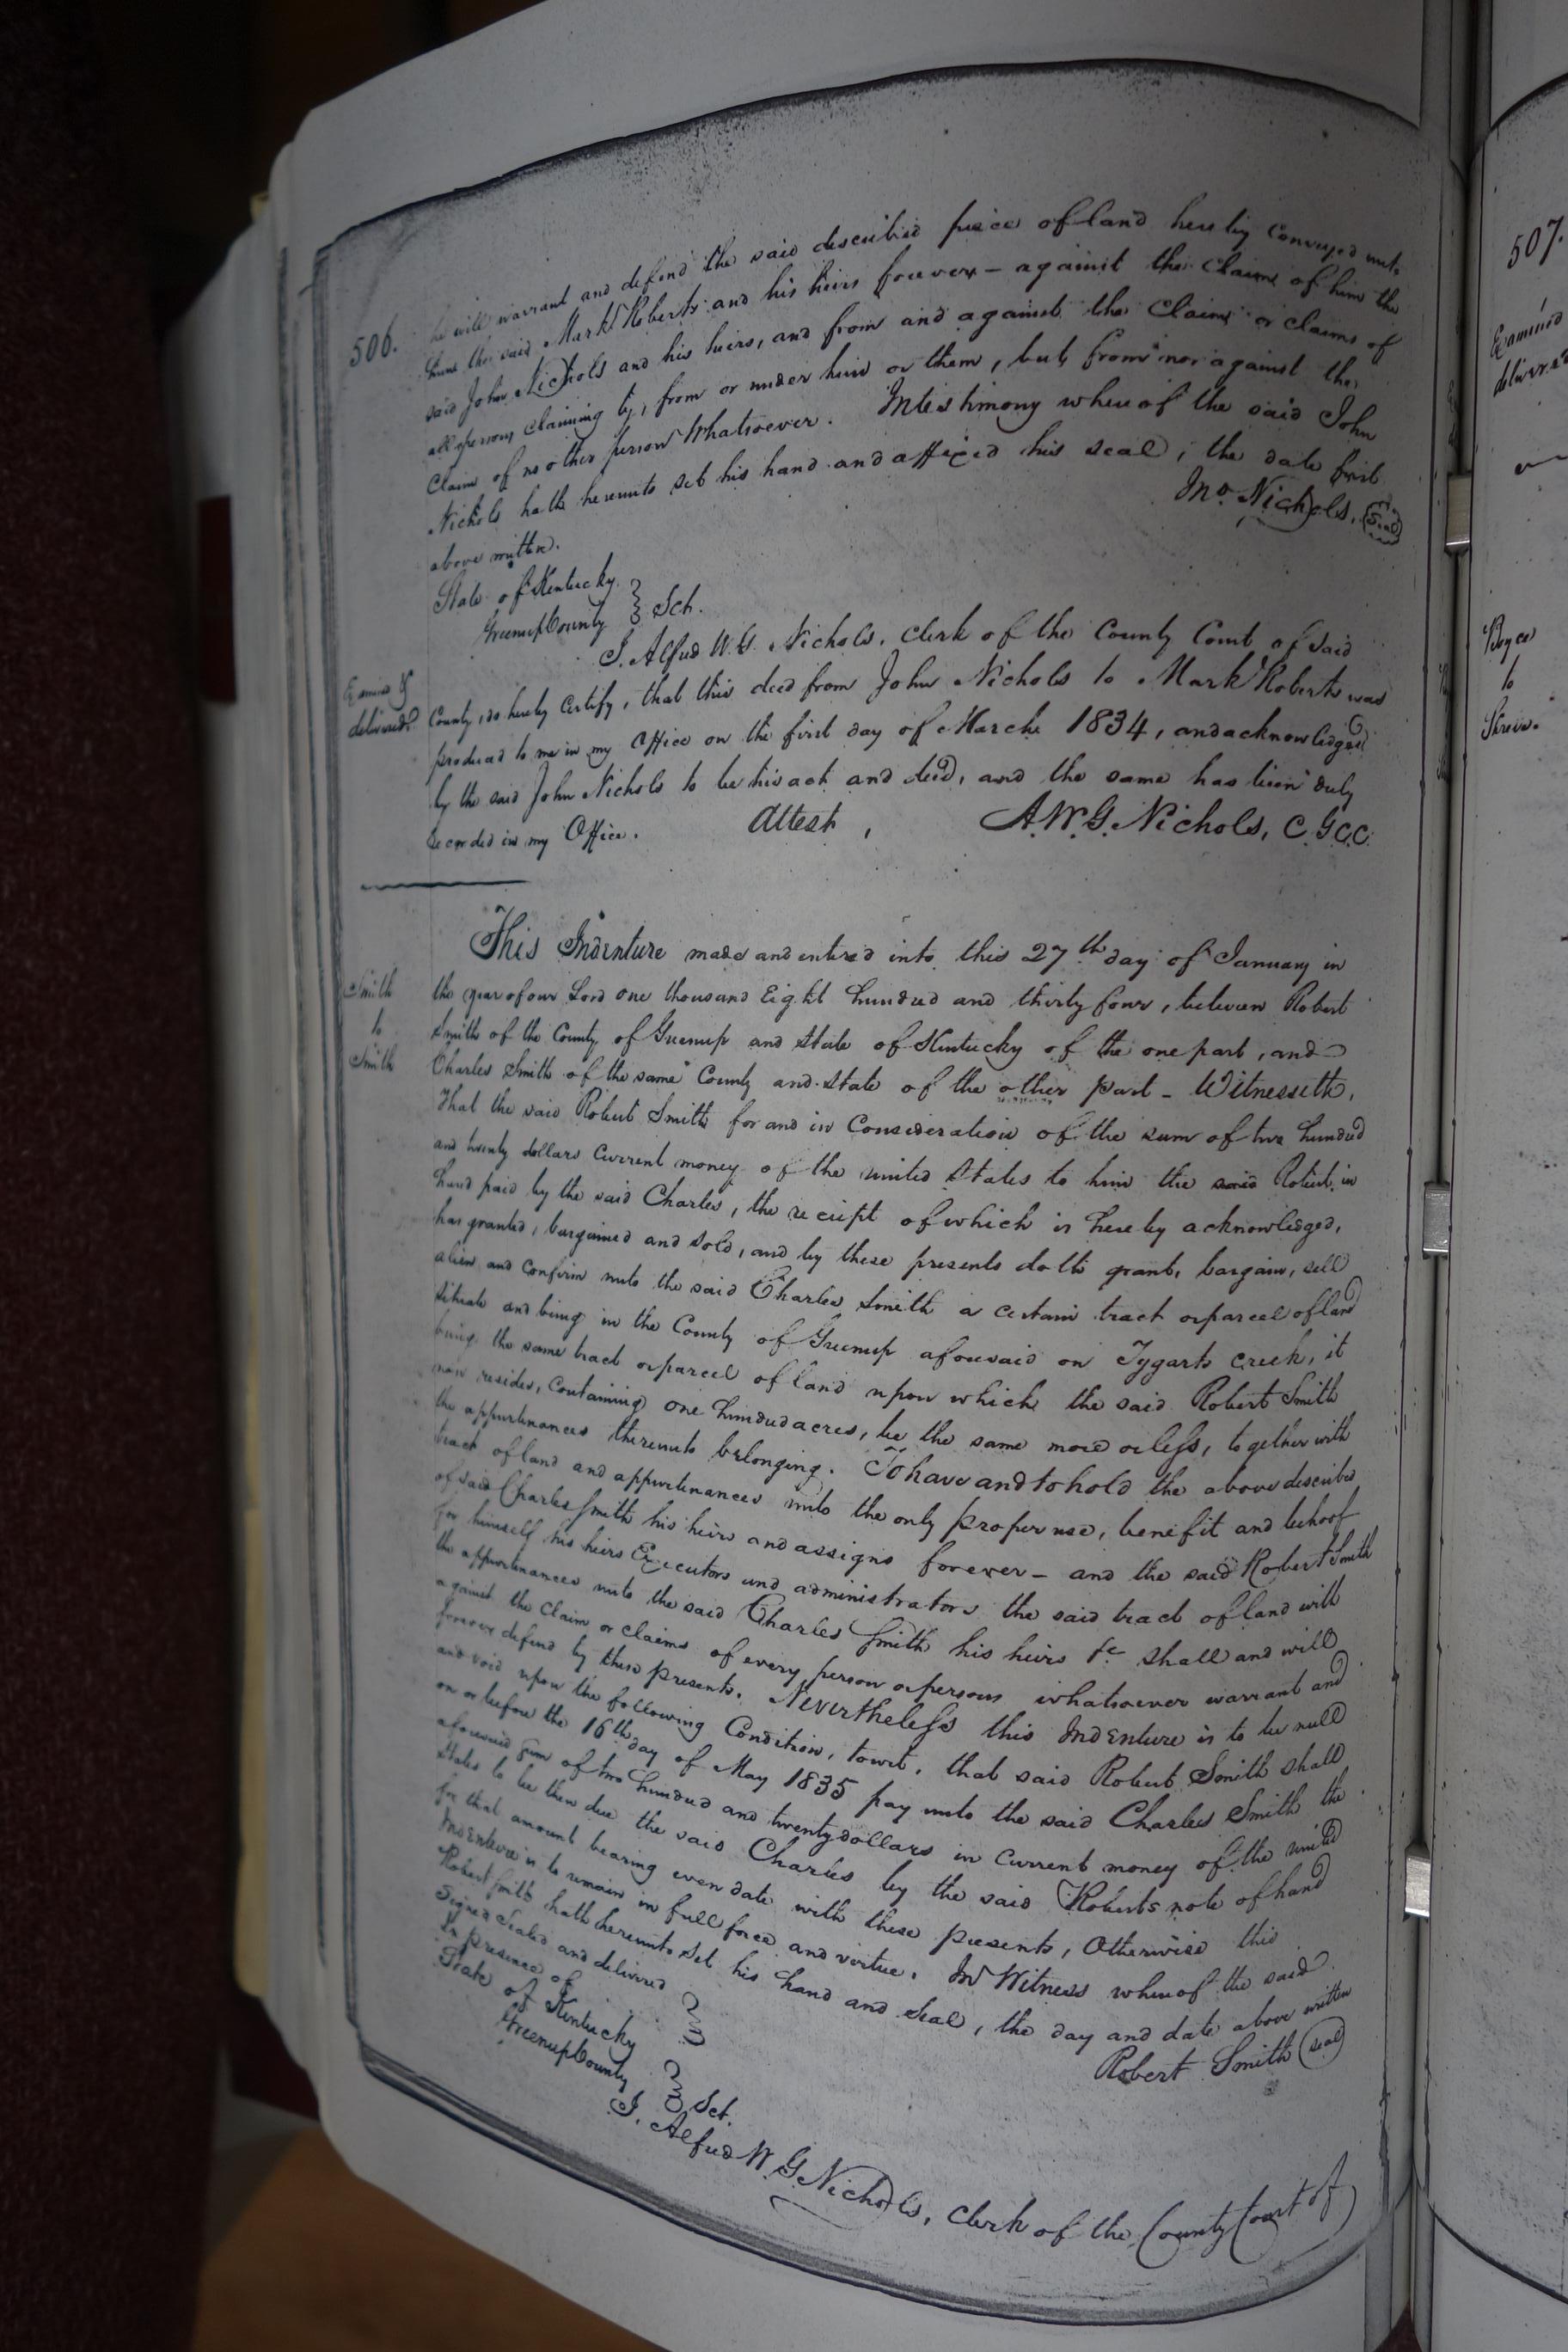 506.
he will warrant and defend the said described piece of land hereby conveyed unto
him the said Mark Roberts and his heirs forever – against the claim of him the
said John Nichols and his heirs, and from and against the claim or claims of
all persons claiming by, from or under him or them, but from nor against the
claim of no other person whatsoever. Intestimony whereof the said John
Nichols hath hereunto set his hand and affixed his seal, the date first
above written.
Jno. Nichols, Seal
State of Kentucky
Greenup County } Sct.
I. Alfred W. G. Nichols, Clerk of the County Court of said
Examined &
delivered
County, do hereby certify, that this deed from John Nichols to Mark Roberts was
produced to me in my Office on the first day of March 1834, and acknowledged
by the said John Nichols to be his act and deed, and the same has been duly
recorded in my Office. Attest, A. W. G. Nichols, C. G. C. C.
Smith
to
Smith
This Indenture made and entered into this 27th day of January in
the year of our Lord one thousand Eight hundred and thirty four, between Robert
Smith of the County of Greenup and State of Kentucky of the one part, and
Charles Smith of the same County and State of the other part – Witnesseth,
That the said Robert Smith for and in Consideration of the sum of two hundred
and twenty dollars Current money of the united States to him the said Robert in
hand paid by the said Charles, the receipt of which is hereby acknowledged,
has granted, bargained and sold, and by these presents doth grant, bargain, sell
alien and confirm unto the said Charles Smith a certain tract or parcel of land
situate and being in the County of Greenup aforesaid on Tygarts creek, it
being the same tract or parcel of land upon which the said Robert Smith
now resides, Containing one hundred acres, be the same more or less, together with
the appurtenances thereunto belonging. To have and to hold the above described
tract of land and appurtenances unto the only proper use, benefit and behoof
of said Charles Smith his heirs and assigns forever – and the said Robert Smith
for himself his heirs Executors and administrators the said tract of land with
the appurtenances unto the said Charles Smith his heirs &c shall and will
against the claim or claims of every person or persons whatsoever warrant and
forever defend by these presents. Nevertheless this Indenture is to be null
and void upon the following Condition, towit, that said Robert Smith shall
on or before the 16th day of May 1835 pay unto the said Charles Smith the
aforesaid sum of two hundred and twenty dollars in current money of the united
States to be then due the said Charles by the said Roberts note of hand
for that amount bearing even date with these presents, Otherwise this
Indenture is to remain in full force and virtue. In Witness whereof the said
Robert Smith hath hereunto set his hand and Seal, the day and date above written
Signed Sealed and delivered
In presence of
Robert Smith (seal)
State of Kentucky
Greenup County } Sct.
I. Alfred W. G. Nichols, Clerk of the County Court of
507.
Examined
delivered
Boyce
to